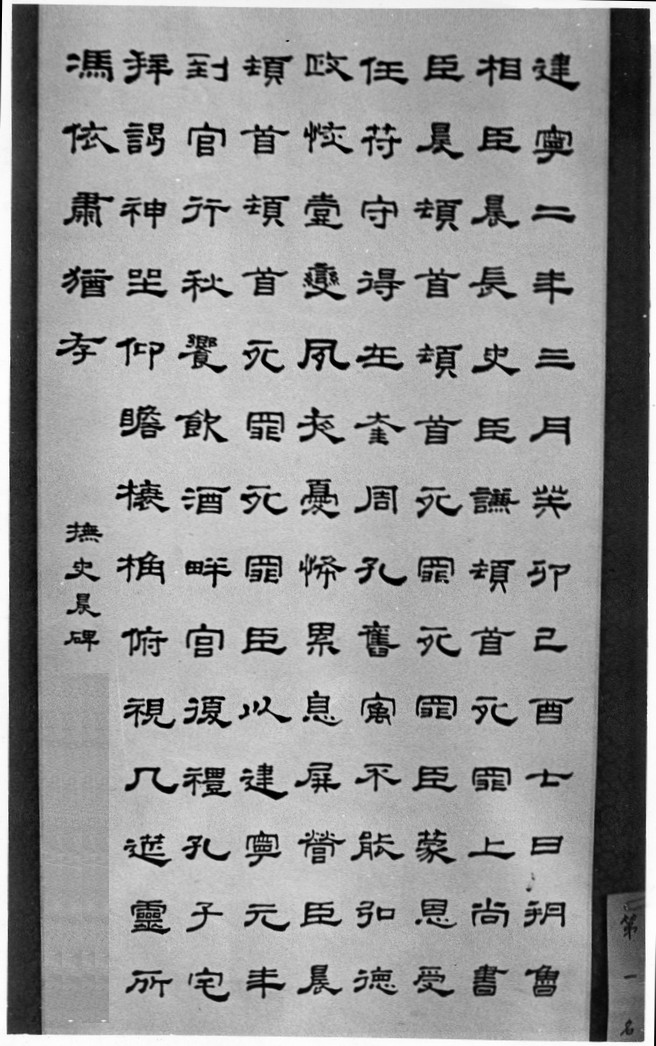 建寧二年三月癸卯己酉士日朔魯
相臣晨長史臣謙頓首死罪上尚書
臣晨頓首頓首死罪死罪臣蒙恩受
任符守得在奎周孔舊寓不能弘德
政恢壹變夙夜憂怖累息屏營臣晨
頓首頓首死罪死罪臣以建寧元年
到官行秋饗飲酒畔宮復禮孔子宅
拜謁神坐仰瞻榱桷俯視几筵靈所
馮依肅猶存
撫史晨碑
第一名